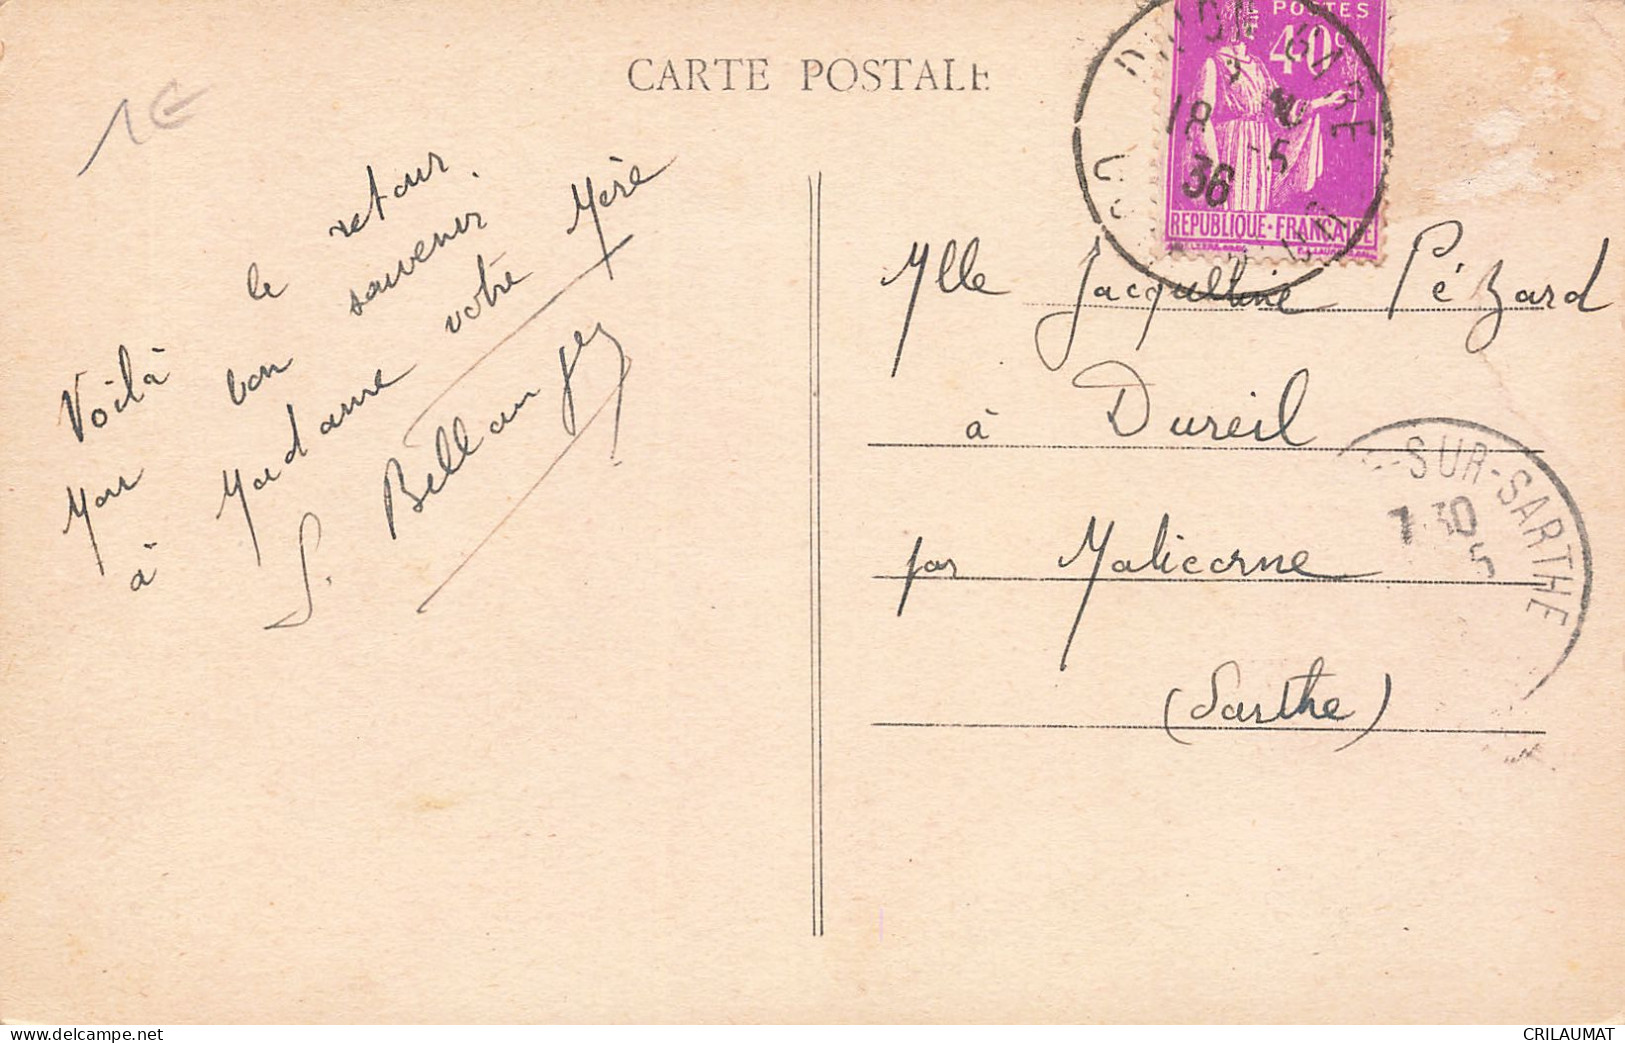 CARTE POSTALE
1€
POSTES
40c
REPUBLIQUE-FRANÇAISE
DIJON GARE
18
5
36
Voilà le retour
Mon bon souvenir
à Madame votre Mère
S. Bellanger
Mlle Jacqueline Pézard
à Dureil
par Malicorne
(Sarthe)
-SUR-SARTHE
7 30
5
www.delcampe.net
CRILAUMAT